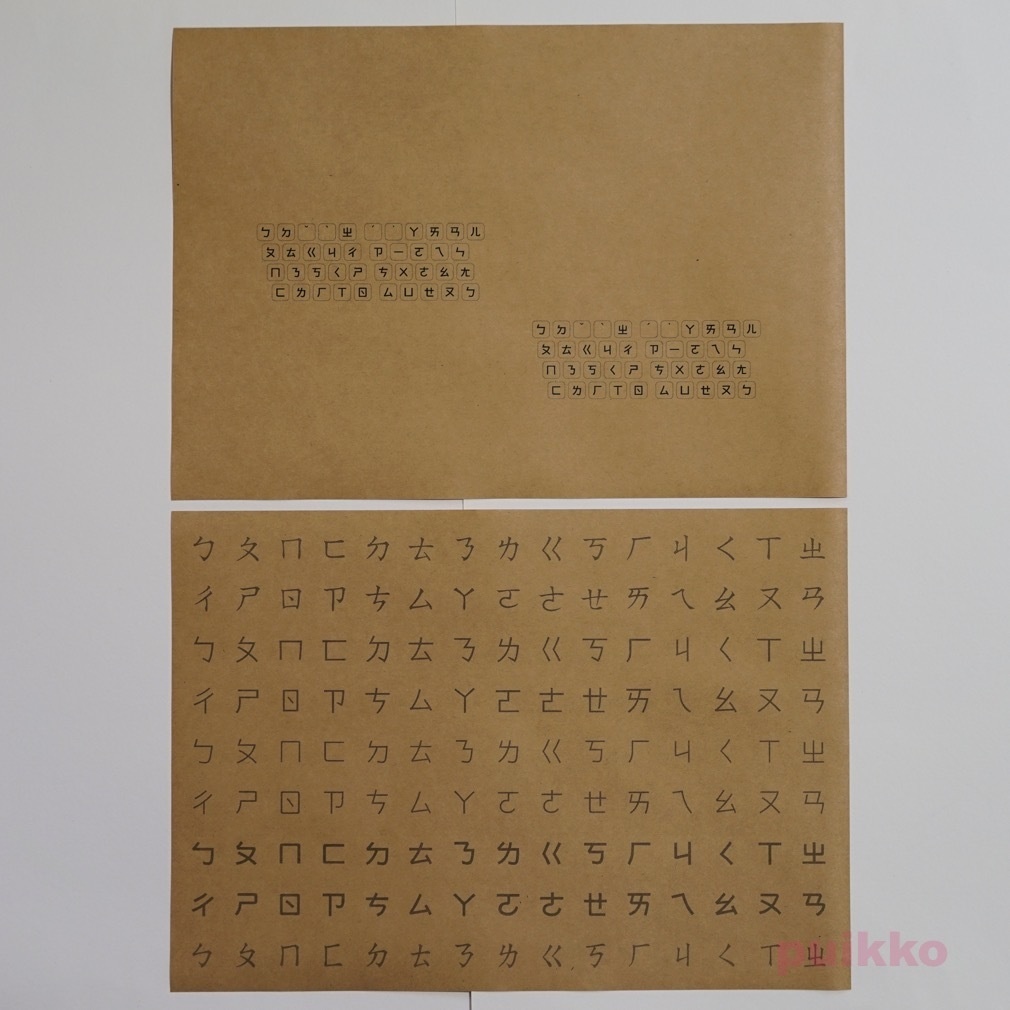 ㄅ ㄉ ˇ ˋ ㄓ ˊ ˙ ㄚ ㄞ ㄢ ㄦ
ㄆ ㄊ ㄍ ㄐ ㄔ ㄗ ㄧ ㄛ ㄟ ㄣ
ㄇ ㄋ ㄎ ㄑ ㄕ ㄘ ㄨ ㄜ ㄠ ㄤ
ㄈ ㄌ ㄏ ㄒ ㄖ ㄙ ㄩ ㄝ ㄡ ㄥ
ㄅ ㄉ ˇ ˋ ㄓ ˊ ˙ ㄚ ㄞ ㄢ ㄦ
ㄆ ㄊ ㄍ ㄐ ㄔ ㄗ ㄧ ㄛ ㄟ ㄣ
ㄇ ㄋ ㄎ ㄑ ㄕ ㄘ ㄨ ㄜ ㄠ ㄤ
ㄈ ㄌ ㄏ ㄒ ㄖ ㄙ ㄩ ㄝ ㄡ ㄥ
ㄅ ㄆ ㄇ ㄈ ㄉ ㄊ ㄋ ㄌ ㄍ ㄎ ㄏ ㄐ ㄑ ㄒ ㄓ
ㄔ ㄕ ㄖ ㄗ ㄘ ㄙ ㄚ ㄛ ㄜ ㄝ ㄞ ㄟ ㄠ ㄡ ㄢ
ㄅ ㄆ ㄇ ㄈ ㄉ ㄊ ㄋ ㄌ ㄍ ㄎ ㄏ ㄐ ㄑ ㄒ ㄓ
ㄔ ㄕ ㄖ ㄗ ㄘ ㄙ ㄚ ㄛ ㄜ ㄝ ㄞ ㄟ ㄠ ㄡ ㄢ
ㄅ ㄆ ㄇ ㄈ ㄉ ㄊ ㄋ ㄌ ㄍ ㄎ ㄏ ㄐ ㄑ ㄒ ㄓ
ㄔ ㄕ ㄖ ㄗ ㄘ ㄙ ㄚ ㄛ ㄜ ㄝ ㄞ ㄟ ㄠ ㄡ ㄢ
ㄅ ㄆ ㄇ ㄈ ㄉ ㄊ ㄋ ㄌ ㄍ ㄎ ㄏ ㄐ ㄑ ㄒ ㄓ
ㄔ ㄕ ㄖ ㄗ ㄘ ㄙ ㄚ ㄛ ㄜ ㄝ ㄞ ㄟ ㄠ ㄡ ㄢ
ㄅ ㄆ ㄇ ㄈ ㄉ ㄊ ㄋ ㄌ ㄍ ㄎ ㄏ ㄐ ㄑ ㄒ ㄓ
puikko